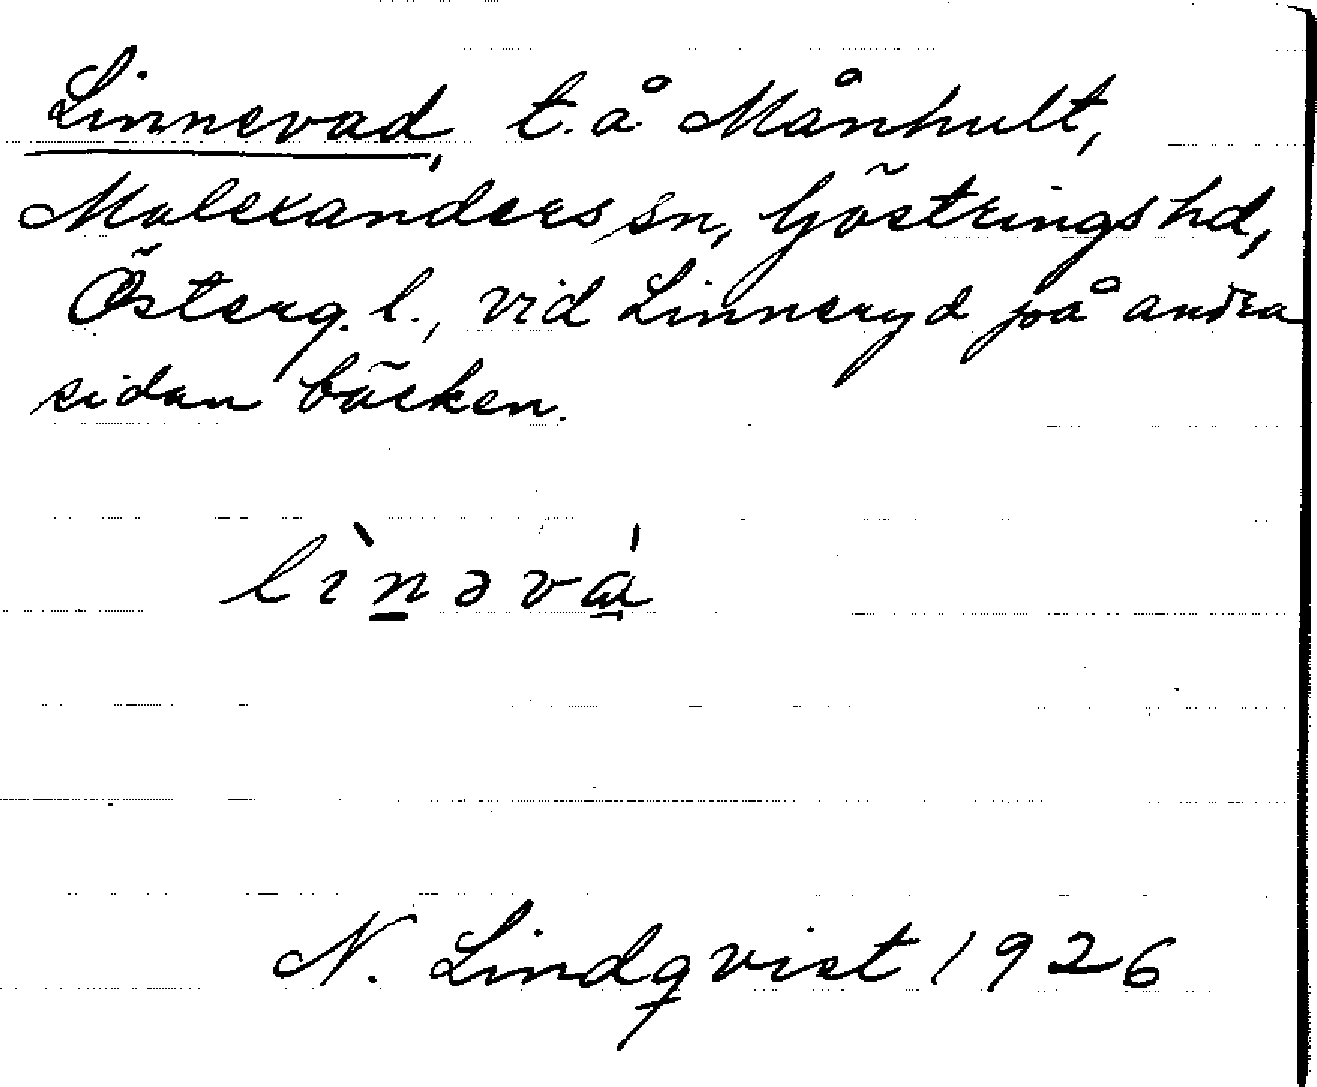 Linnevad, t. å Månhult,
Malexanders sn, Göstrings hd,
Österg. l., vid Linneryd på andra
sidan bäcken.
lìnəvá
N. Lindqvist 1926